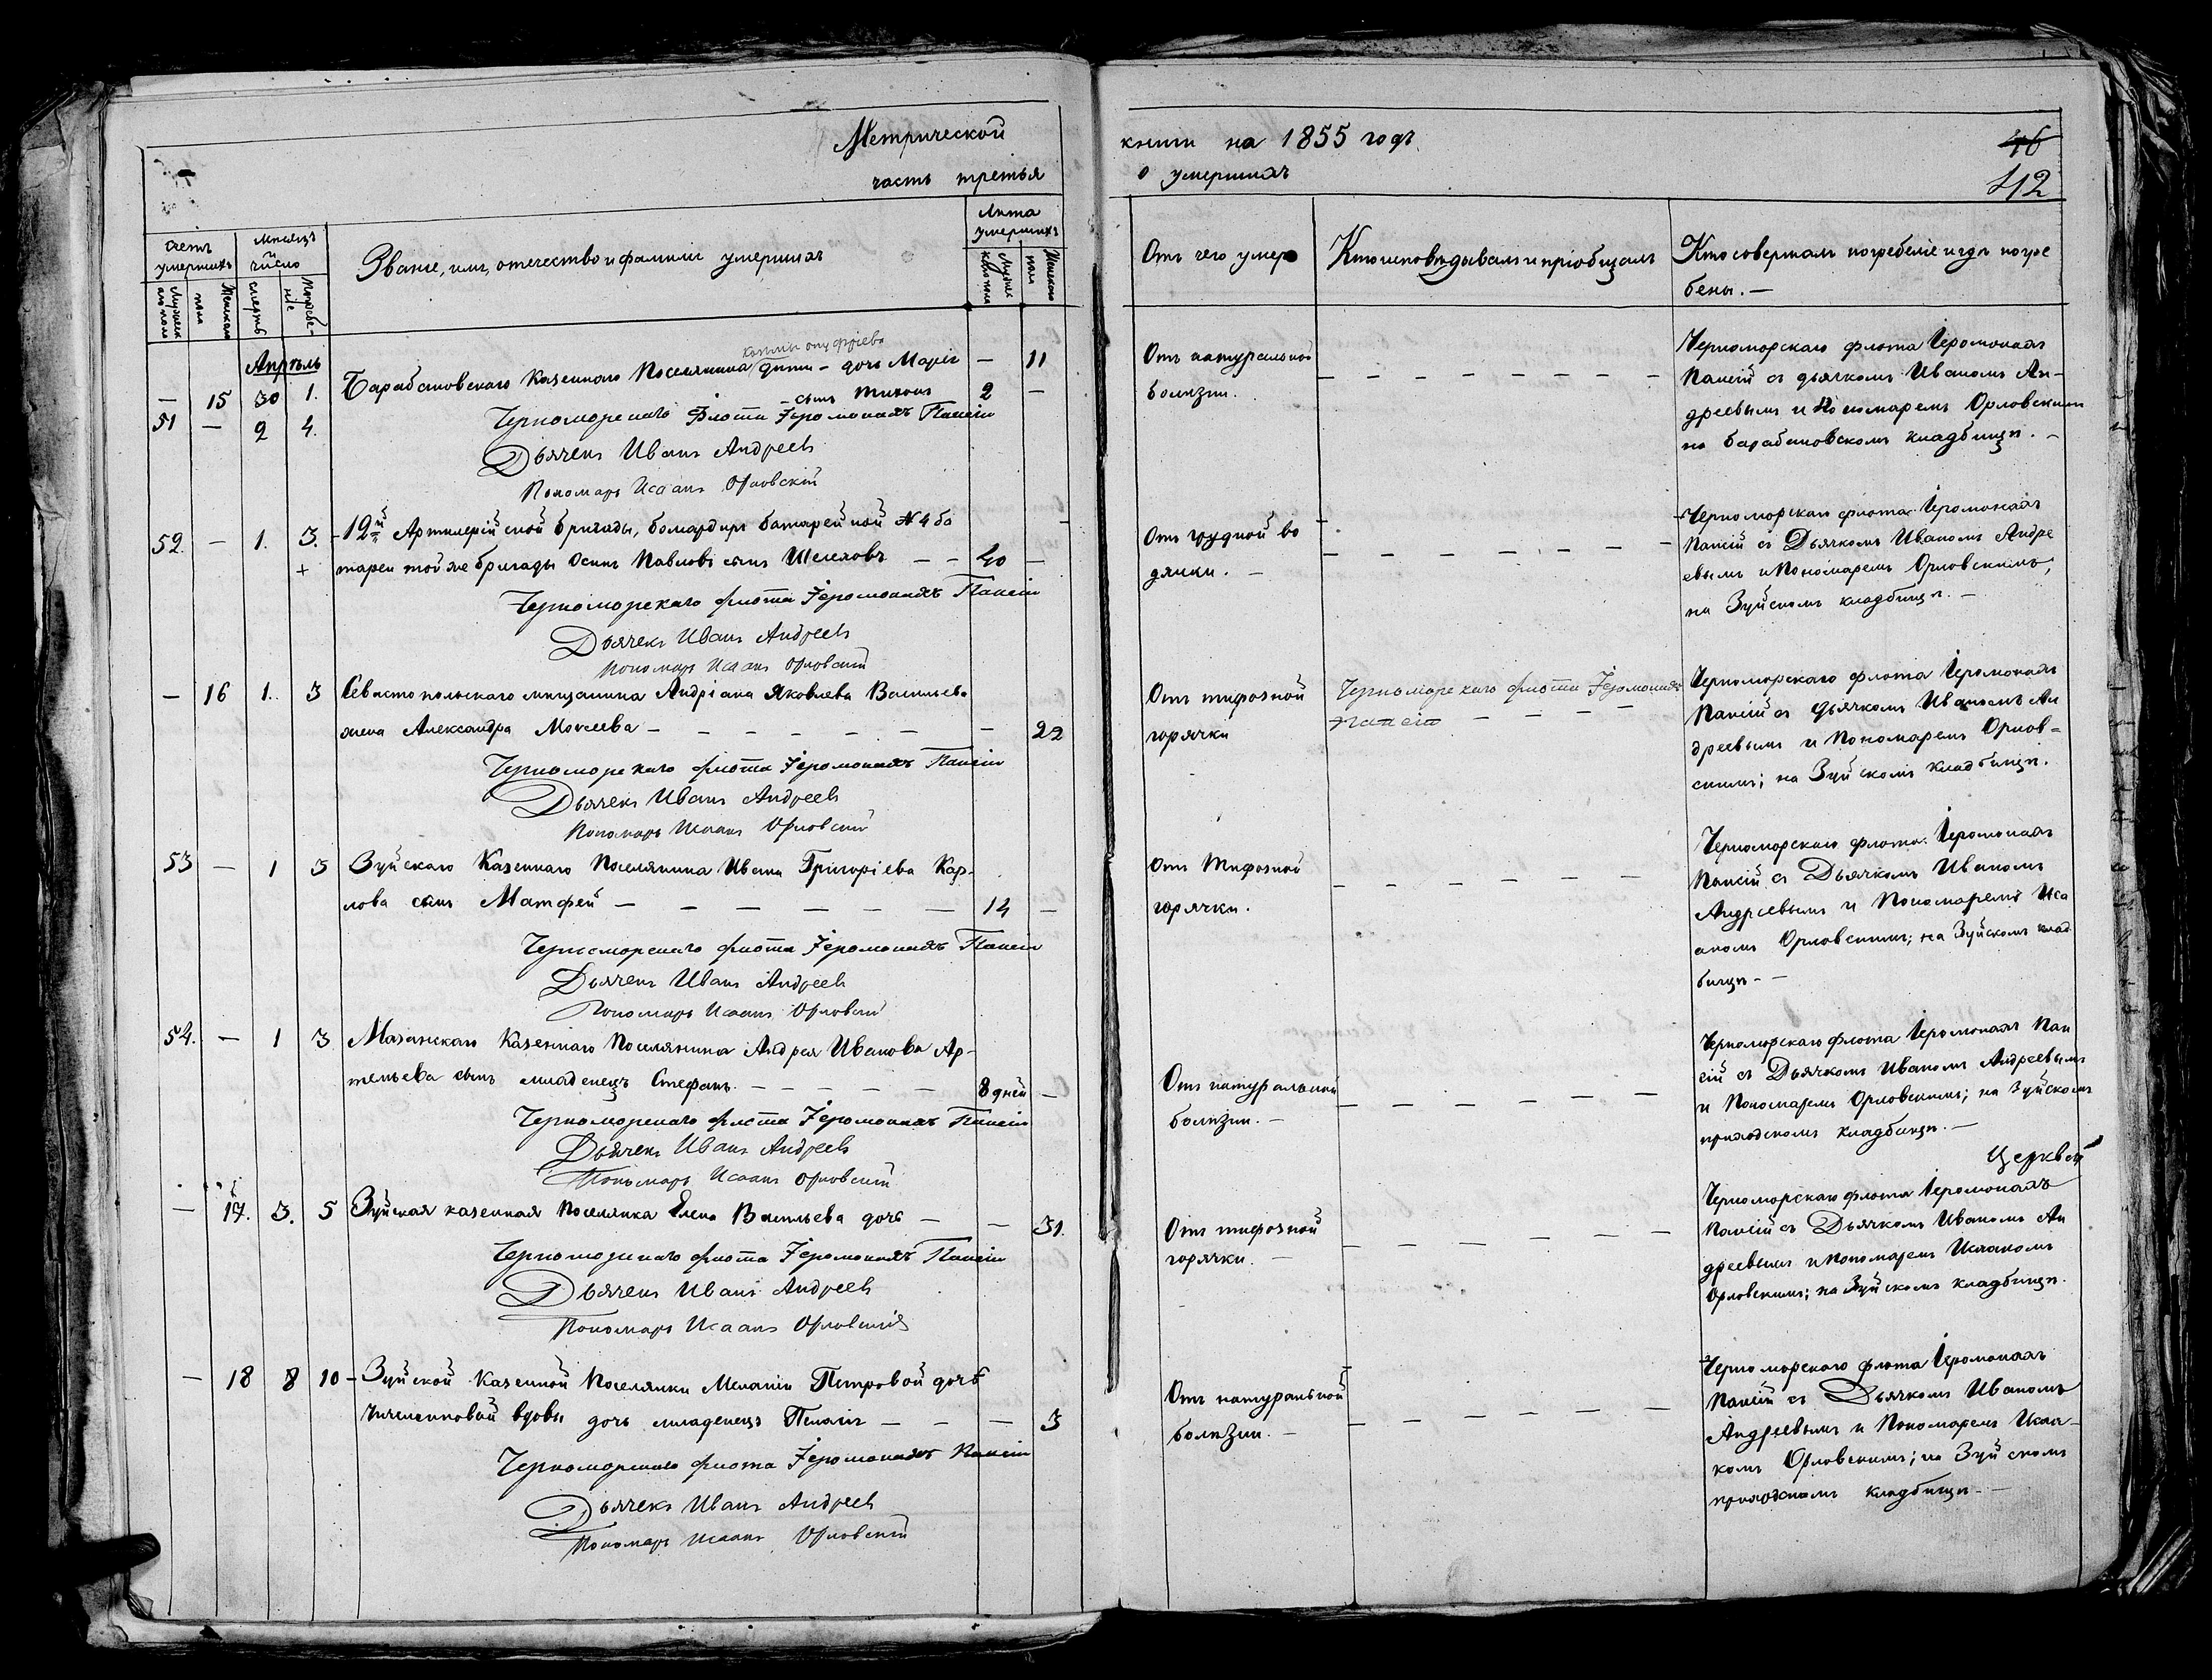 Метрической
часть третья
Счетъ умершихъ
Мужеск аго пола
Женскаго пола
Мѣсяцъ и число
смерть
Погребе-ніе
Званіе, имя, отечество и фамиліе умершихъ
Лѣта умершихъ
Мужес каго пола
Женскаго пола
Апрѣль
— 15 30 1. Барабановскаго Казеннаго Поселянина дѣти – дочь Марія — 11
51 — 2 4. – сынъ Тихонъ 2 —
Черноморскаго Флота Іеромонахъ Паисій
Дьячекъ Иванъ Андреевъ
Пономарь Исаакъ Орловскій
52. — 1. 3. 12й Артилерійской бригады, бомардиръ батарейной №4 ба
+ тареи той же бригады Осипъ Павловъ сынъ Шелеховъ — — 40 —
Черноморскаго флота Іеромонахъ Паисій
Дьячекъ Иванъ Андреевъ
Пономарь Исаакъ Орловскій
— 16 1. 3 Севастопольскаго мѣщанина Андріана Яковлева Васильева
жена Александра Моисеева — — — — — — — 22
Черноморскаго флота Іеромонахъ Паисій
Дьячекъ Иванъ Андреевъ
Пономарь Исаакъ Орловскій
53 — 1 3 Зуйскаго Казеннаго Поселянина Ивана Григоріева Кар-
лова сынъ Матфей — — — — — — 14 —
Черноморскаго флота Іеромонахъ Паисій
Дьячекъ Иванъ Андреевъ
Пономарь Исаакъ Орловскій
54. — 1 3 Мазанскаго Казеннаго Поселянина Андрея Иванова Ар-
темьева сынъ младенецъ Стефанъ. — — — — — 8 дней —
Черноморскаго флота Іеромонахъ Паисій
Дьячекъ Иванъ Андреевъ
Пономарь Исаакъ Орловскій
— 17. 3. 5 Зуйская казенная Поселянка Елена Васильева дочь — — 31.
Черноморскаго флота Іеромонахъ Паисій
Дьячекъ Иванъ Андреевъ
Пономарь Исаакъ Орловскій
— 18 8 10 – Зуйской Казенной Поселянки Меланіи Петровой дочь
вдовы дочь младенецъ Пелагія — — — 3
Черноморскаго флота Іеромонахъ Паисій
Дьячекъ Иванъ Андреевъ
Пономарь Исаакъ Орловскій
книги на 1855 годъ
о умершихъ
46
42
От чего умеръ
Кто исповѣдывалъ и пріобщалъ
Кто совершалъ погребеніе и гдѣ погре
бены. —
Отъ натуральной
болѣзни.
Черноморскаго флота Іеромонахъ
Паисій съ дьячкомъ Иваномъ Ан-
дреевымъ и Пономаремъ Орловскимъ
на барабановскомъ кладбищѣ. –
Отъ грудной во
дянки. —
Черноморскаго флота Іеромонахъ
Паисій съ Дьячкомъ Иваномъ Андре
евымъ и Пономаремъ Орловскимъ,
на Зуйскомъ кладбищѣ. —
Отъ тифозной
горячки
Черноморскаго флота Іеромонахъ
Паисій — — — —
Черноморскаго флота Іеромонахъ
Паисій съ Дьячкомъ Иваномъ Ан
дреевымъ и Пономаремъ Орлов=
скимъ; на Зуйскомъ кладбищѣ.
Отъ Тифозной
горячки.
Черноморскаго флота Іеромонахъ
Паисій съ Дьячкомъ Иваномъ
Андреевымъ и Пономаремъ Иса
акомъ Орловскимъ; на Зуйскомъ клад
бищѣ – –
Отъ натуральной
болѣзни. —
Черноморскаго флота Іеромонахъ Паи
сій съ Дьячкомъ Иваномъ Андреевымъ
и Пономаремъ Орловскимъ; на Зуйскомъ
приходскомъ кладбищѣ. —
Церквей
Отъ тифозной
горячки.
Черноморскаго флота Іеромонахъ
Паисій съ Дьячкомъ Иваномъ Ан
дреевымъ и Пономаремъ Исаакомъ
Орловскимъ; на Зуйскомъ кладбищѣ.
Отъ натуральной
болѣзни. —
Черноморскаго флота Іеромонахъ
Паисій съ Дьячкомъ Иваномъ
Андреевымъ и Пономаремъ Исаа-
комъ Орловскимъ; на Зуйскомъ
приходскомъ кладбищѣ. —